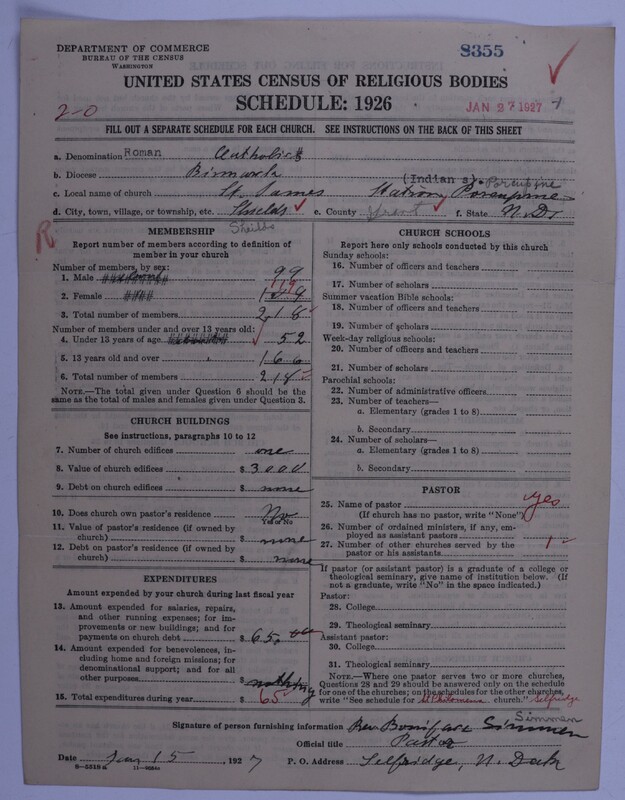 DEPARTMENT OF COMMERCE
BUREAU OF THE CENSUS
WASHINGTON
8355
UNITED STATES CENSUS OF RELIGIOUS BODIES
SCHEDULE: 1926
2-0
JAN 27 1927
FILL OUT A SEPARATE SCHEDULE FOR EACH CHURCH. SEE INSTRUCTIONS ON THE BACK OF THIS SHEET
a. Denomination Roman Catholic
b. Diocese Bismarck
(Indian s) Porcupine
c. Local name of church St. James Station, Porcupine
d. City, town, village, or township, etc. Shields e. County Grant f. State N. D.
Sheilds
R
MEMBERSHIP
Report number of members according to definition of member in your church
Number of members, by sex:
1. Male 99
119
2. Female
3. Total number of members 218
Number of members under and over 13 years old:
4. Under 13 years of age 52
5. 13 years old and over 166
6. Total number of members 218
NOTE.—The total given under Question 6 should be the same as the total of males and females given under Question 3.
CHURCH BUILDINGS
See instructions, paragraphs 10 to 12
7. Number of church edifices one
8. Value of church edifices $ 3000
9. Debt on church edifices $ none
10. Does church own pastor's residence No
Yes or No
11. Value of pastor's residence (if owned by church) $ none
12. Debt on pastor's residence (if owned by church) $ none
EXPENDITURES
Amount expended by your church during last fiscal year
13. Amount expended for salaries, repairs, and other running expenses; for improvements or new buildings; and for payments on church debt $ 65.00
14. Amount expended for benevolences, including home and foreign missions; for denominational support; and for all other purposes $ nothing
15. Total expenditures during year $ 65
CHURCH SCHOOLS
Report here only schools conducted by this church
Sunday schools:
16. Number of officers and teachers
17. Number of scholars
Summer vacation Bible schools:
18. Number of officers and teachers
19. Number of scholars
Week-day religious schools:
20. Number of officers and teachers
21. Number of scholars
Parochial schools:
22. Number of administrative officers
23. Number of teachers—
a. Elementary (grades 1 to 8)
b. Secondary
24. Number of scholars—
a. Elementary (grades 1 to 8)
b. Secondary
PASTOR
25. Name of pastor yes
(If church has no pastor, write "None")
26. Number of ordained ministers, if any, employed as assistant pastors
27. Number of other churches served by the pastor or his assistants 1
If pastor (or assistant pastor) is a graduate of a college or theological seminary, give name of institution below. (If not a graduate, write "No" in the space indicated.)
Pastor:
28. College
29. Theological seminary
Assistant pastor:
30. College
31. Theological seminary
NOTE.—Where one pastor serves two or more churches, Questions 28 and 29 should be answered only on the schedule for one of the churches; on the schedules for the other churches, write "See schedule for St Philomena church." Selfridge
Simmen
Signature of person furnishing information Rev. Boniface Simmen
Official title Pastor
Date Jan 15, 1927 P. O. Address Selfridge, N. Dak